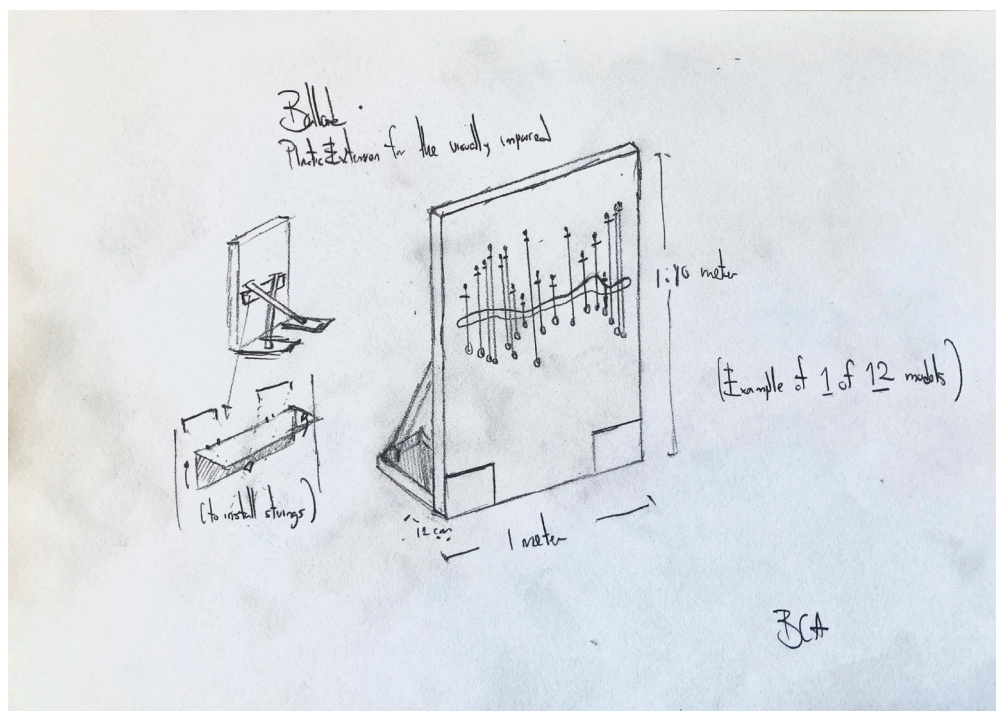 Plastic Extension for the visually impaired
1.40 meter
(Example of 1 of 12 models)
(to install strings)
12 cm
1 meter
BCA